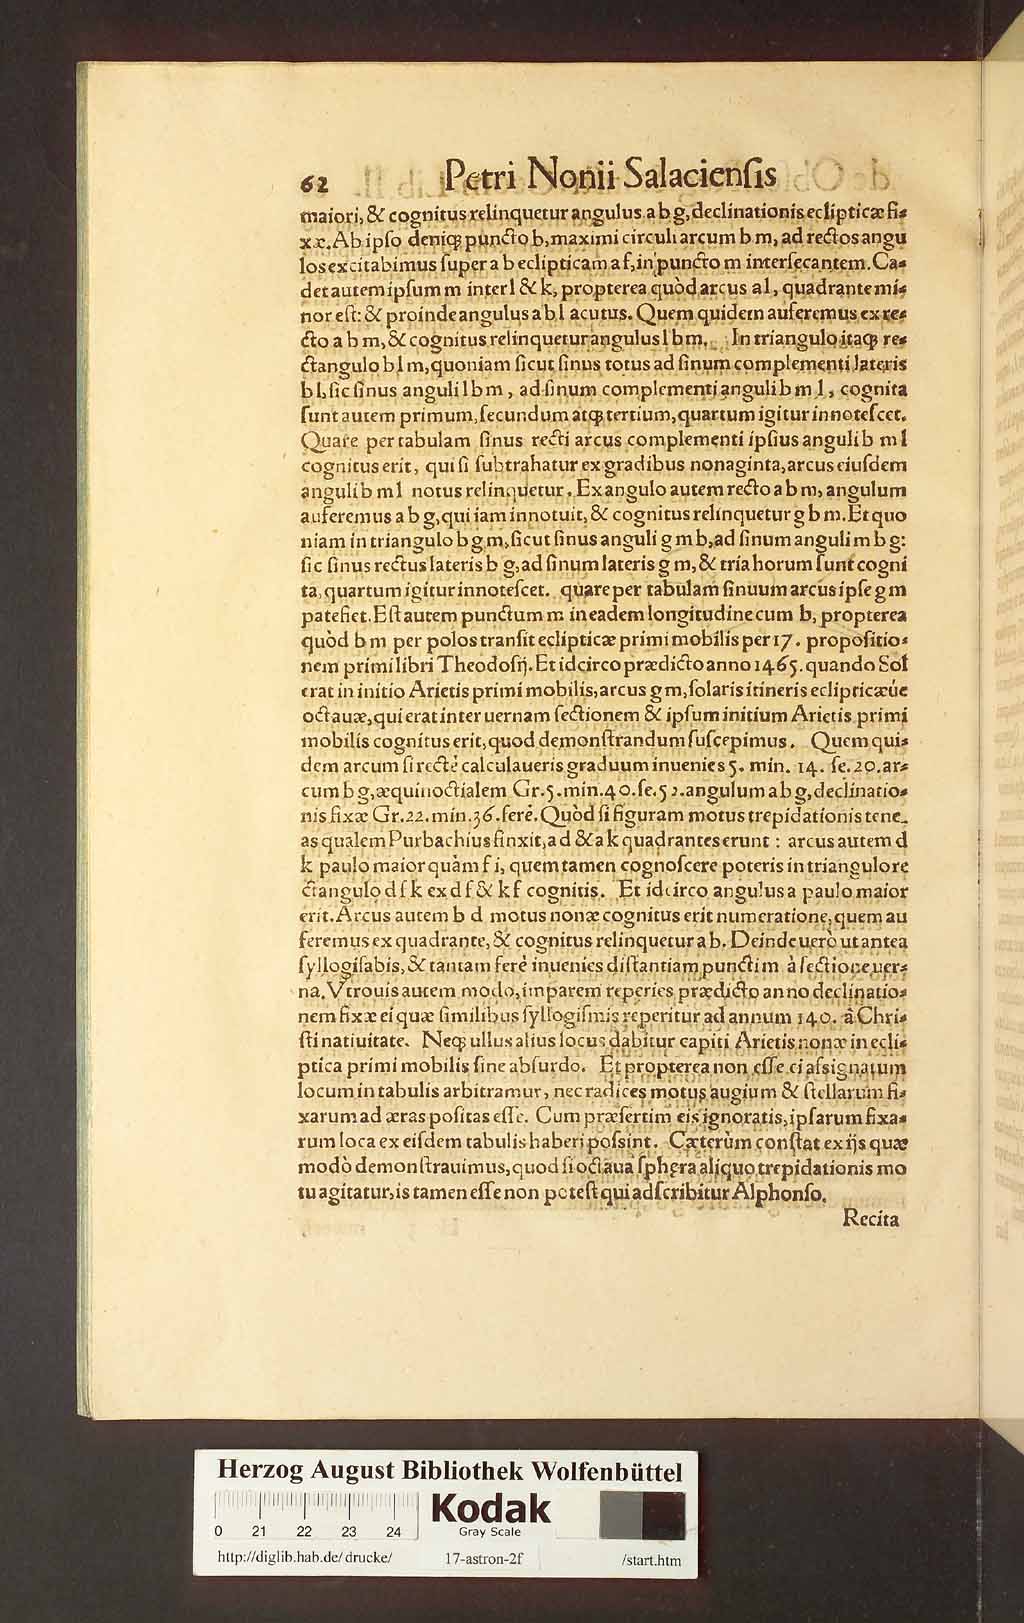 62 Petri Nonii Salaciensis
maiori, & cognitus relinquetur angulus a b g, declinationis eclipticæ fi-
xæ. Ab ipso deniqꝫ puncto b, maximi circuli arcum b m, ad rectos angu
los excitabimus super a b eclipticam a f, in puncto m intersecantem. Ca-
det autem ipsum m inter l & k, propterea quòd arcus a l, quadrante mi-
nor est: & proinde angulus a b l acutus. Quem quidem auferemus ex re-
cto a b m, & cognitus relinquetur angulus l b m. In triangulo itaqꝫ re-
ctangulo b l m, quoniam sicut sinus totus ad sinum complementi lateris
b l, sic sinus anguli l b m, ad sinum complementi anguli b m l, cognita
sunt autem primum, secundum atqꝫ tertium, quartum igitur innotescet.
Quare per tabulam sinus recti arcus complementi ipsius anguli b m l
cognitus erit, qui si subtrahatur ex gradibus nonaginta, arcus eiusdem
anguli b m l notus relinquetur. Ex angulo autem recto a b m, angulum
auferemus a b g, qui iam innotuit, & cognitus relinquetur g b m. Et quo
niam in triangulo b g m, sicut sinus anguli g m b, ad sinum anguli m b g:
sic sinus rectus lateris b g, ad sinum lateris g m, & tria horum sunt cogni
ta, quartum igitur innotescet. quare per tabulam sinuum arcus ipse g m
patefiet. Est autem punctum m in eadem longitudine cum b, propterea
quòd b m per polos transit eclipticæ primi mobilis per 17. propositio-
nem primi libri Theodosij. Et idcirco prædicto anno 1465. quando Sol
erat in initio Arietis primi mobilis, arcus g m, solaris itineris eclipticæúe
octauæ, qui erat inter uernam sectionem & ipsum initium Arietis primi
mobilis cognitus erit, quod demonstrandum suscepimus. Quem qui-
dem arcum si rectè calculaueris graduum inuenies 5. min. 14. se. 20. ar-
cum b g, æquinoctialem Gr. 5. min. 40. se. 52. angulum a b g, declinatio-
nis fixæ Gr. 22. min. 36. ferè. Quòd si figuram motus trepidationis tene-
as qualem Purbachius finxit, a d & a k quadrantes erunt: arcus autem d
k paulo maior quàm f i, quem tamen cognoscere poteris in triangulo re
ctangulo d f k ex d f & k f cognitis. Et idcirco angulus a paulo maior
erit. Arcus autem b d motus nonæ cognitus erit numeratione, quem au
feremus ex quadrante, & cognitus relinquetur a b. Deinde uerò ut antea
syllogisabis, & tantam ferè inuenies distantiam puncti m à sectione uer-
na. Vtrouis autem modo, imparem reperies prædicto anno declinatio-
nem fixæ ei quæ similibus syllogismis reperitur ad annum 140. à Chri-
sti natiuitate. Neqꝫ ullus alius locus dabitur capiti Arietis nonæ in ecli-
ptica primi mobilis sine absurdo. Et propterea non esse ei assignatum
locum in tabulis arbitramur, nec radices motus augium & stellarum fi-
xarum ad æras positas esse. Cum præsertim eis ignoratis, ipsarum fixa-
rum loca ex eisdem tabulis haberi possint. Cæterùm constat ex ijs quæ
modò demonstrauimus, quod si octaua sphęra aliquo trepidationis mo
tu agitatur, is tamen esse non potest qui adscribitur Alphonso.
Recita
Herzog August Bibliothek Wolfenbüttel
0 21 22 23 24
Kodak
Gray Scale
http://diglib.hab.de/drucke/ 17-astron-2f /start.htm